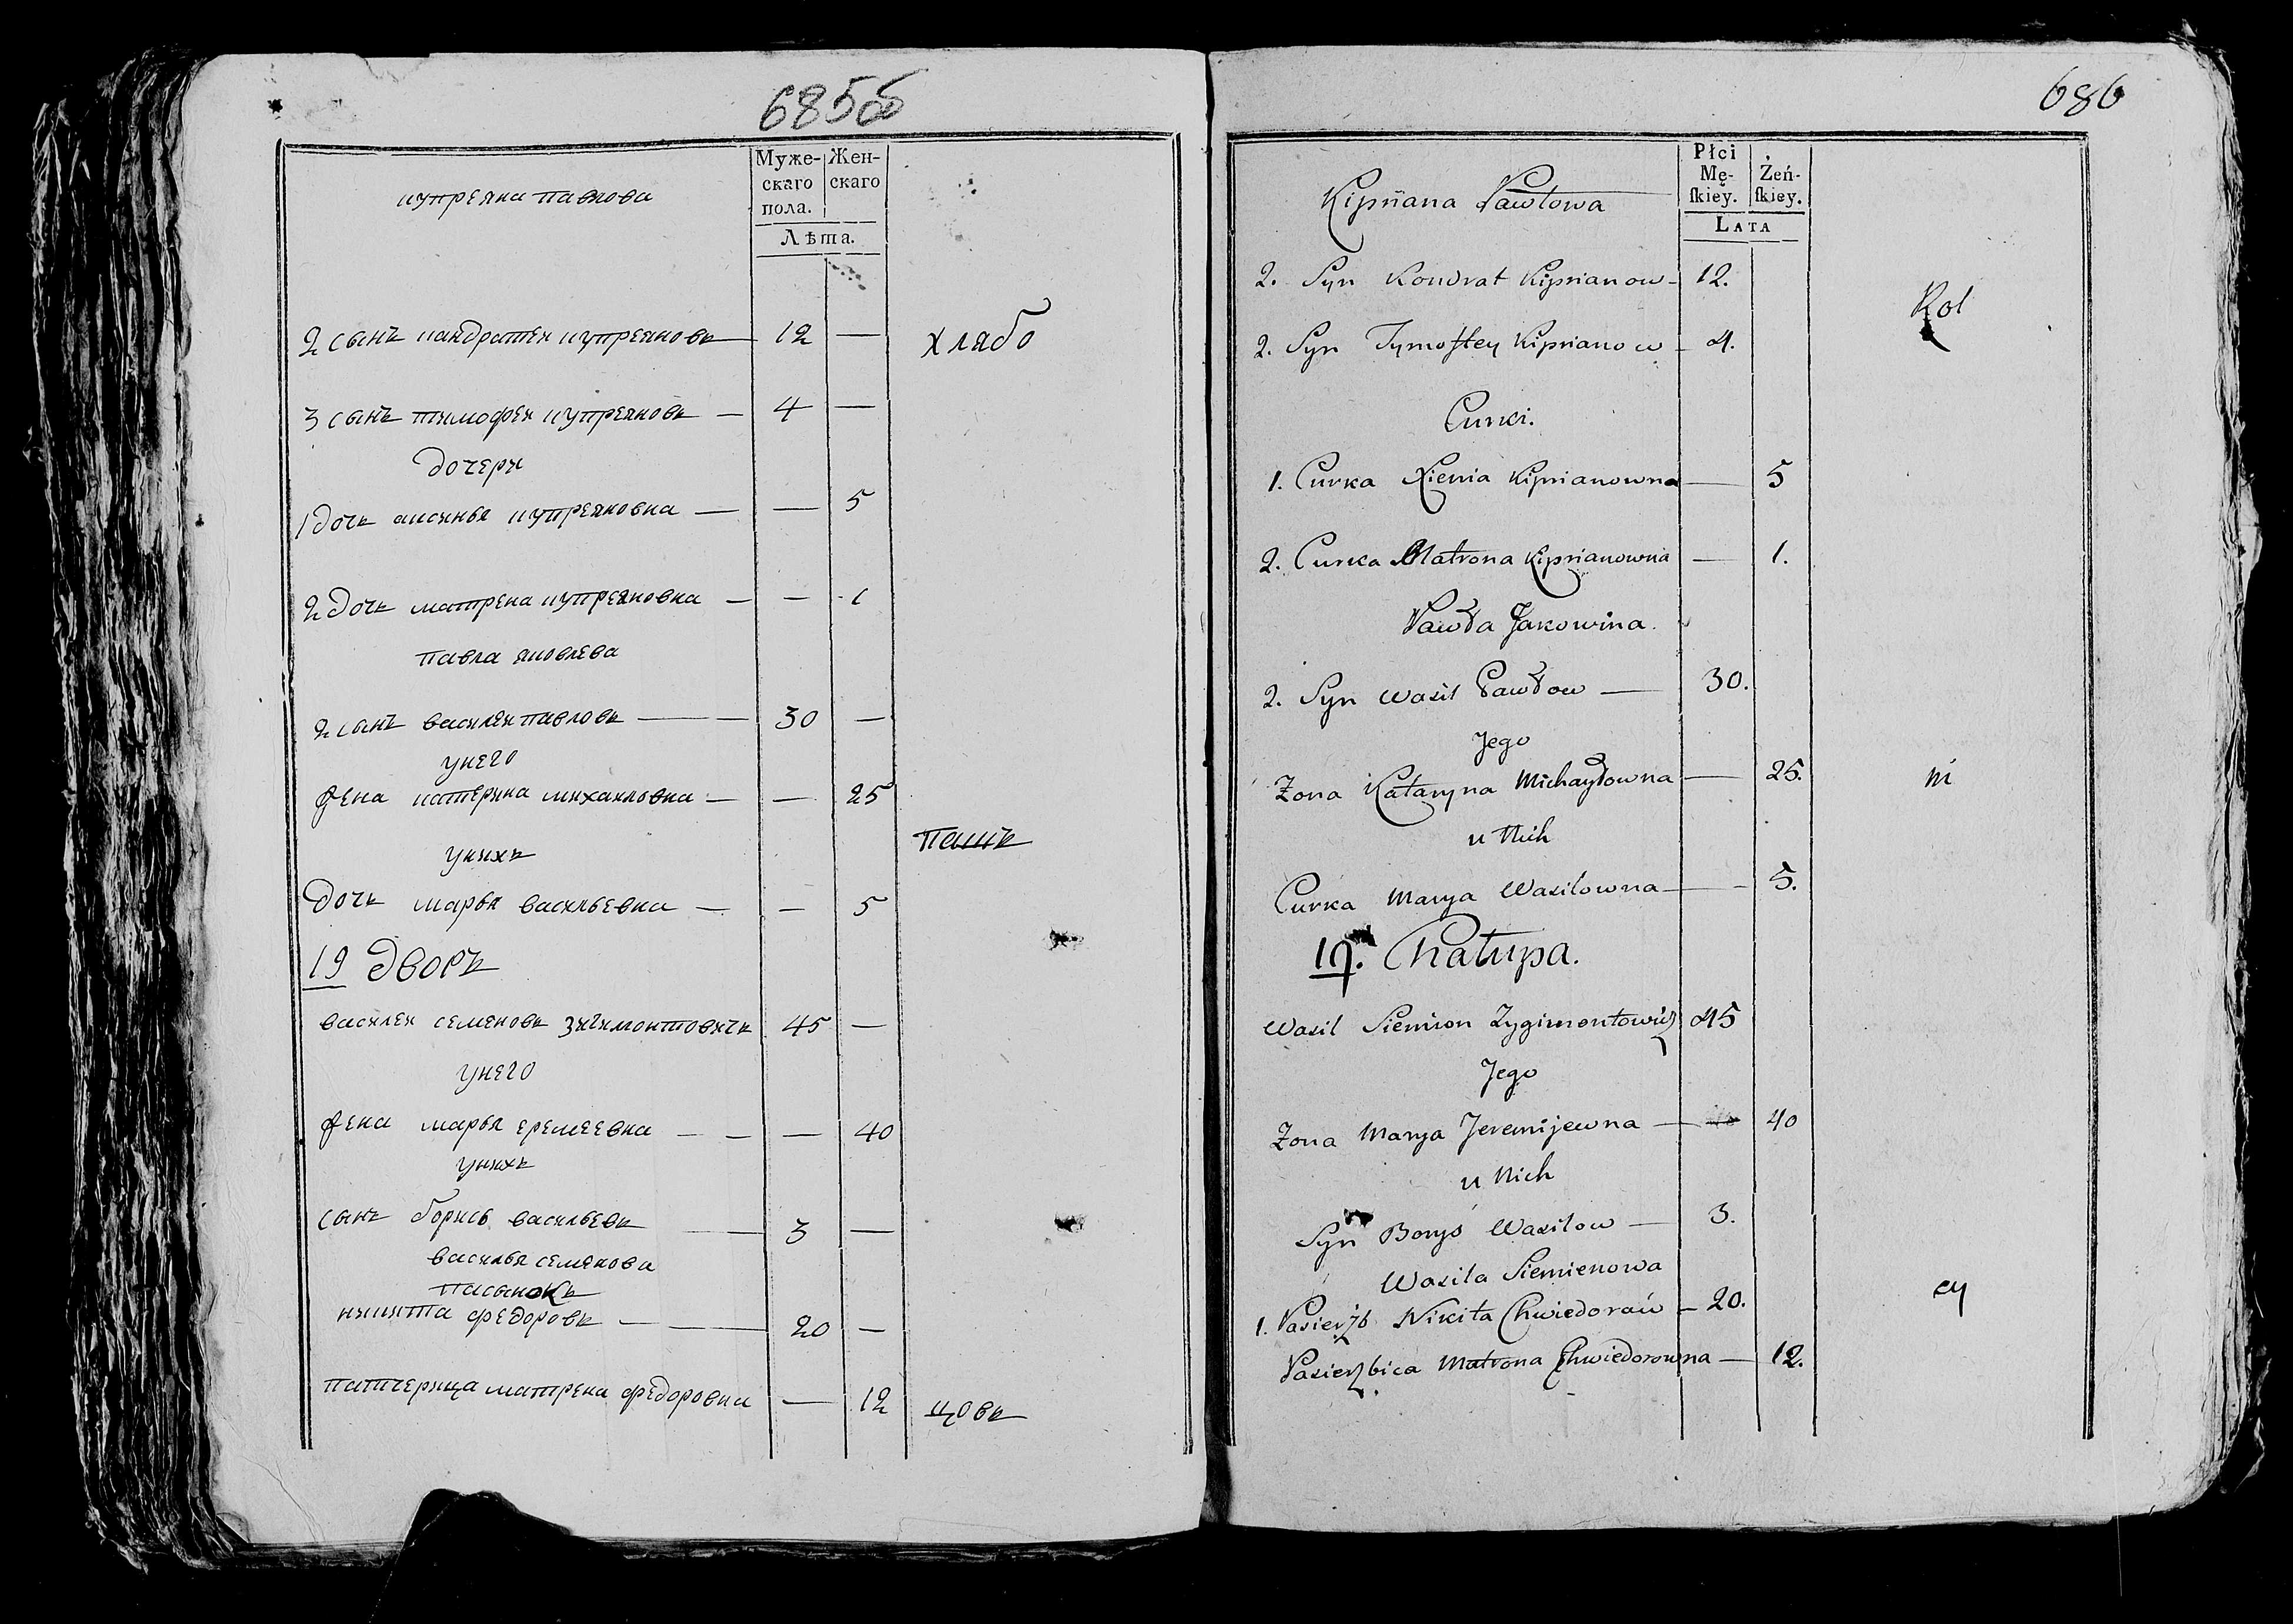 685об
Муже- Жен-
скаго скаго
пола.
Лѣта.
купреяна павлова
2 сынъ кандратеи купреяновъ — 12 — хлябо
3 сынъ тимофеи купреяновъ — 4 —
дочери
1 дочь аксинья купреяновна — — 5
2 дочь матрена купреяновна — — 1
павла яковлева
2 сынъ василеи павловъ — 30 —
унего
жена катерина михаиловна — — 25
унихъ пашъ
дочь марья васильевна — — 5
19 дворъ
василеи семеновъ зигимонтовичь 45 —
унего
жена марья еремеевна — — — 40
унихъ
сынъ борисъ васильевъ — 3 —
василья семенова
пасынокъ
никита федоровъ — 20 —
патчерица матрена федоровна — 12 цовъ
686
Płci
Mę- Żeń-
skiey. skiey.
LATA
Kipriana Pawłowa
2. Syn Kondrat Kiprianow — 12.
Rol
2. Syn Tymoftey Kiprianow — 4.
Curki.
1. Curka Xienia Kiprianowna — 5
2. Curka Matrona Kiprianowna — 1.
Pawła Jakowina.
2. Syn Wasil Pawłow — 30.
Jego
Zona Kataryna Michayłowna — 25. ni
u Nich
Curka Marya Wasilowna — 5.
19. Chatupa.
Wasil Siemion Zygimontowicz 45
Jego
Zona Marya Jeremijewna — 40
u Nich
Syn Borys Wasilow — 3.
Wasila Siemienowa
1. Pasierzb Nikita Chwiedorow — 20. cy
Pasierzbica Matrona Chwiedorowna — 12.